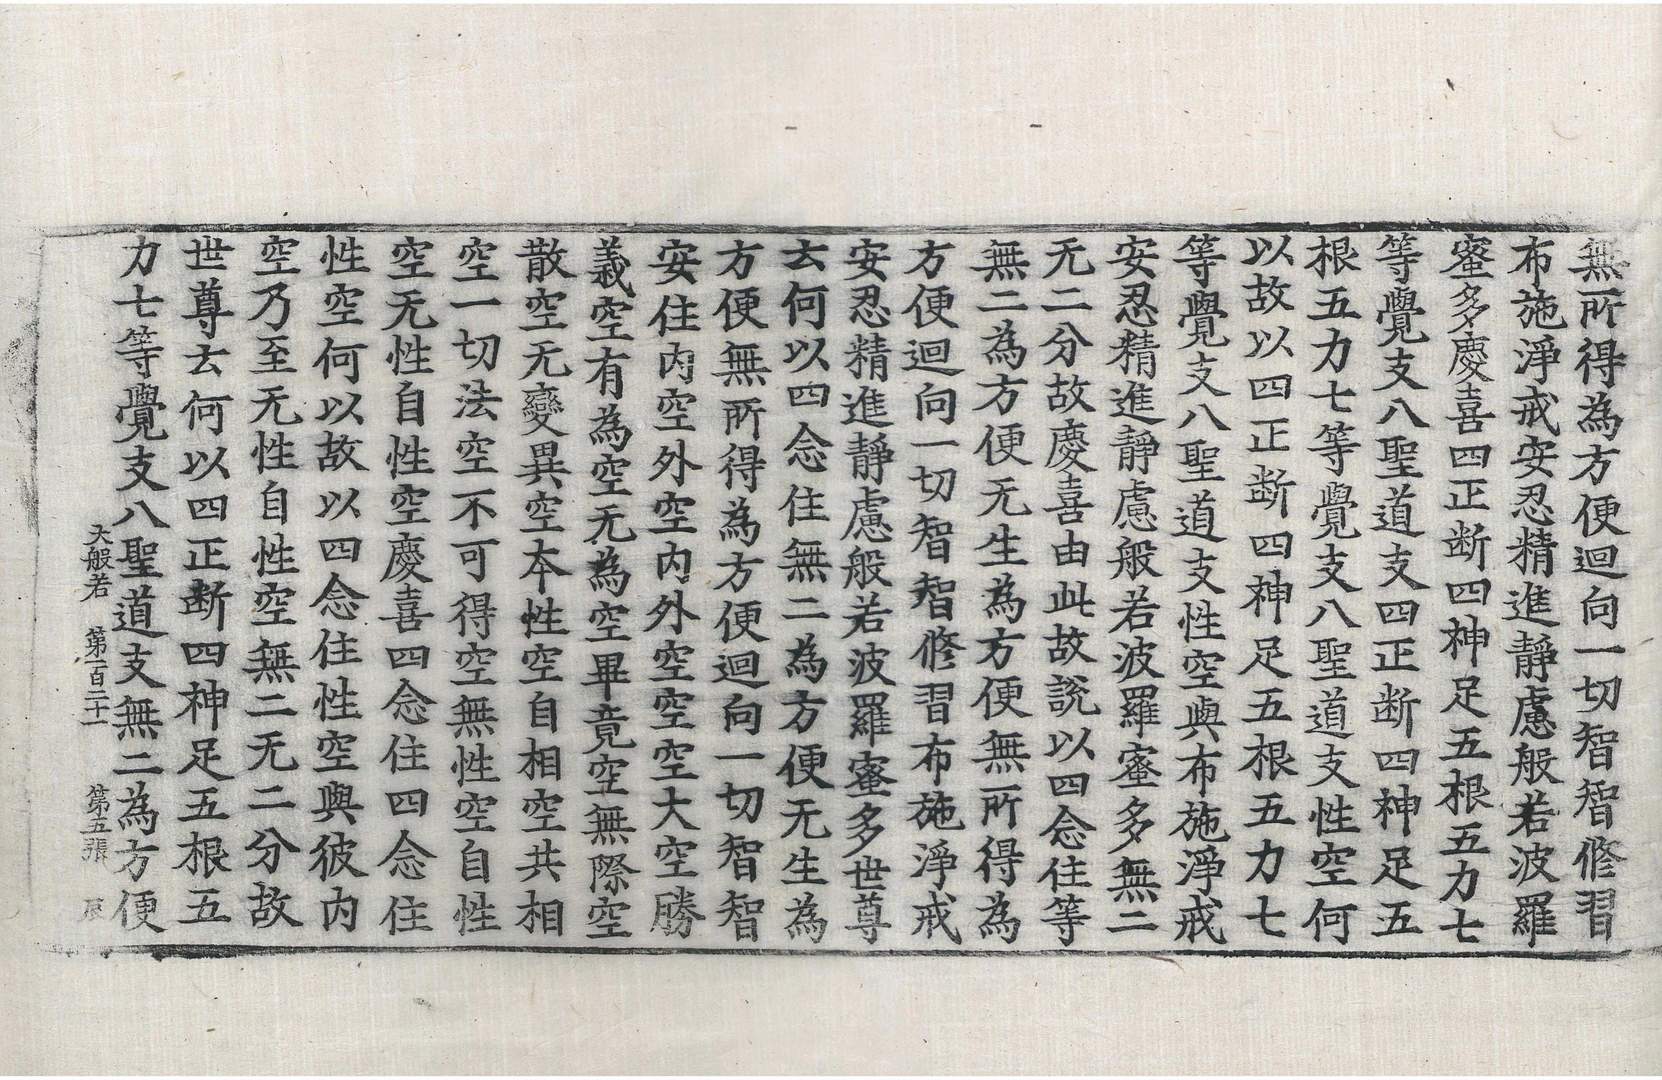 無所得為方便迴向一切智智修習
布施淨戒安忍精進靜慮般若波羅
蜜多慶喜四正断四神足五根五力七
等覺支八聖道支四正断四神足五
根五力七等覺支八聖道支性空何
以故以四正断四神足五根五力七
等覺支八聖道支性空與布施淨戒
安忍精進靜慮般若波羅蜜多無二
无二分故慶喜由此故說以四念住等
無二為方便无生為方便無所得為
方便迴向一切智智修習布施淨戒
安忍精進靜慮般若波羅蜜多世尊
云何以四念住無二為方便无生為
方便無所得為方便迴向一切智智
安住内空外空内外空空空大空勝
義空有為空无為空畢竟空無際空
散空无變異空本性空自相空共相
空一切法空不可得空無性空自性
空无性自性空慶喜四念住四念住
性空何以故以四念住性空與彼内
空乃至无性自性空無二无二分故
世尊云何以四正断四神足五根五
力七等覺支八聖道支無二為方便
大般若 第一百二十一 第五張 辰